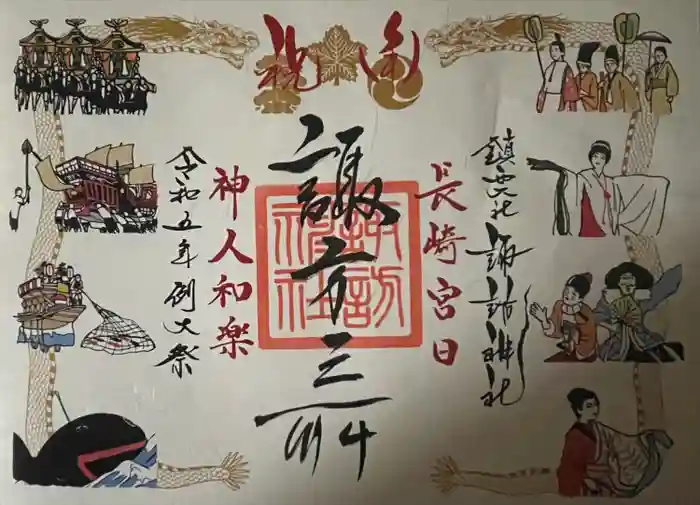 奉祝
長崎宮日
鎮西大社 諏訪神社
諏方三所
諏訪神社
神人和楽
令和五年例大祭